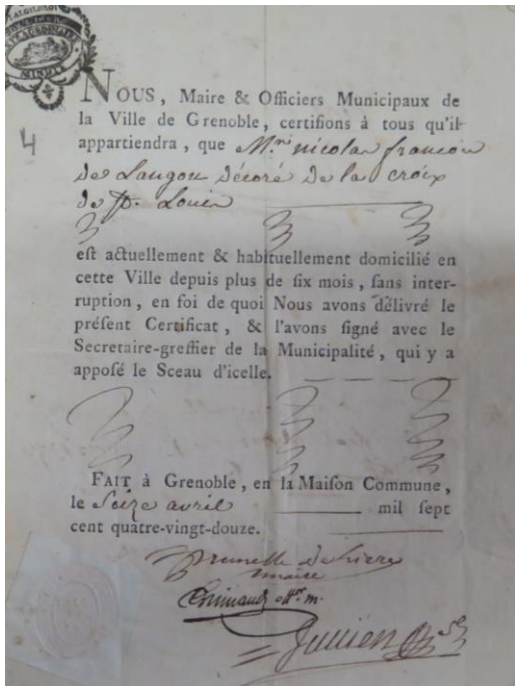 4
NOUS, Maire & Officiers Municipaux de
la Ville de Grenoble, certifions à tous qu'il
appartiendra, que Mr. nicolas françois
de Langon décoré de la croix
de st. Louis
est actuellement & habituellement domicilié en
cette Ville depuis plus de six mois, sans inter-
ruption, en foi de quoi Nous avons délivré le
présent Certificat, & l'avons signé avec le
Secretaire-greffier de la Municipalité, qui y a
apposé le Sceau d'icelle.
FAIT à Grenoble, en la Maison Commune,
le Seize avril mil sept
cent quatre-vingt-douze.
prunelle deliere
maire